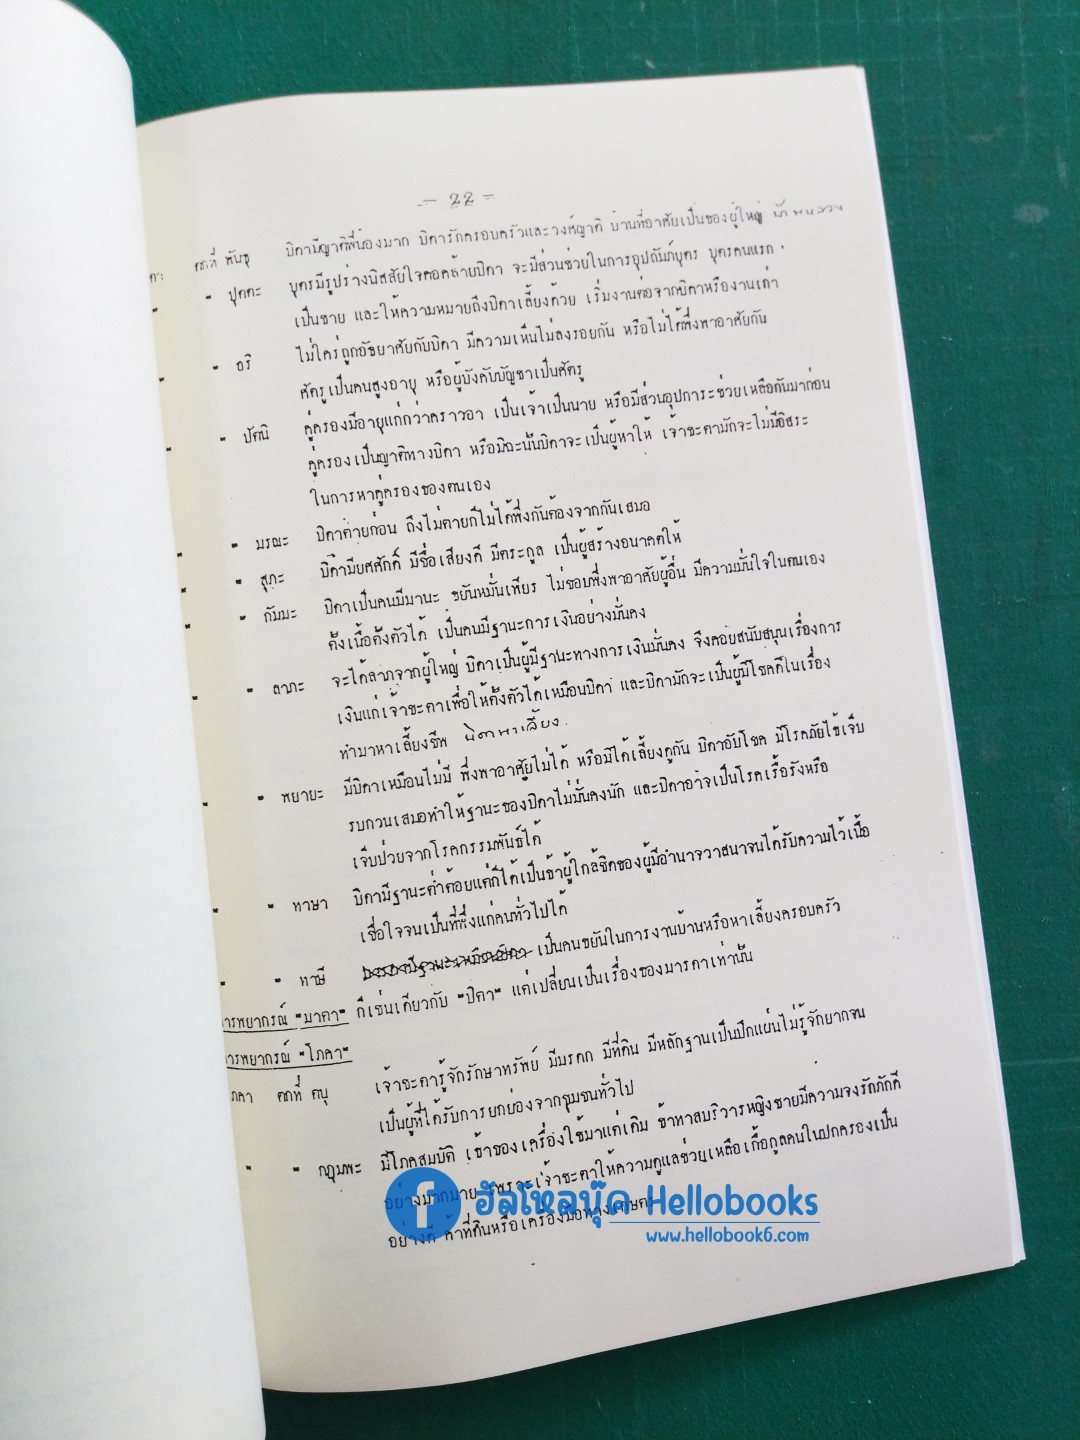 - 22 -
ตกที่ พันธุ บิดามีญาติพี่น้องมาก บิดารักครอบครัวและวงศ์ญาติ บ้านที่อาศัยเป็นของผู้ใหญ่
" ปุตตะ บุตรมีรูปร่างนิสสัยใจคอคล้ายบิดา จะมีส่วนช่วยในการอุปถัมภ์บุตร บุตรคนแรก
เป็นชาย และให้ความหมายถึงบิดาเลี้ยงด้วย เริ่มงานต่อจากบิดาหรืองานเก่า
" อริ ไม่ใคร่ถูกอัธยาศัยกับบิดา มีความเห็นไม่ลงรอยกัน หรือไม่ได้พึ่งพาอาศัยกัน
ศัตรูเป็นคนสูงอายุ หรือผู้บังคับบัญชาเป็นศัตรู
" ปัตนิ คู่ครองมีอายุแก่กว่าคราวอา เป็นเจ้าเป็นนาย หรือมีส่วนอุปการะช่วยเหลือกันมาก่อน
คู่ครองเป็นญาติทางบิดา หรือมิฉะนั้นบิดาจะเป็นผู้หาให้ เจ้าชะตามักจะไม่มีอิสระ
ในการหาคู่ครองของตนเอง
" มรณะ บิดาตายก่อน ถึงไม่ตายก็ไม่ได้พึ่งกันต้องจากกันเสมอ
" สุภะ บิดามียศศักดิ์ มีชื่อเสียงดี มีตระกูล เป็นผู้สร้างอนาคตให้
" กัมมะ บิดาเป็นคนมีมานะ ขยันหมั่นเพียร ไม่ชอบพึ่งพาอาศัยผู้อื่น มีความมั่นใจในตนเอง
ตั้งเนื้อตั้งตัวได้ เป็นคนมีฐานะการเงินอย่างมั่นคง
" ลาภะ จะได้ลาภจากผู้ใหญ่ บิดาเป็นผู้มีฐานะทางการเงินมั่นคง จึงคอยสนับสนุนเรื่องการ
เงินแก่เจ้าชะตาเพื่อให้ตั้งตัวได้เหมือนบิดา และบิดามักจะเป็นผู้มีโชคดีในเรื่อง
ทำมาหาเลี้ยงชีพ
" พยายะ มีบิดาเหมือนไม่มี พึ่งพาอาศัยไม่ได้ หรือมิได้เลี้ยงดูกัน บิดาอับโชค มีโรคภัยไข้เจ็บ
รบกวนเสมอทำให้ฐานะของบิดาไม่มั่นคงนัก และบิดาอาจเป็นโรคเรื้อรังหรือ
เจ็บป่วยจากโรคกรรมพันธ์ได้
" ทาษา บิดามีฐานะต่ำต้อยแต่ก็ได้เป็นข้าผู้ใกล้ชิดของผู้มีอำนาจวาสนาจนได้รับความไว้เนื้อ
เชื่อใจจนเป็นที่พึ่งแก่คนทั่วไปได้
" ทาษี เป็นคนขยันในการงานบ้านหรือหาเลี้ยงครอบครัว
การพยากรณ์ "มาตา" ก็เช่นเดียวกับ "ปิตา" แต่เปลี่ยนเป็นเรื่องของมารดาเท่านั้น
การพยากรณ์ "โภคา"
โภคา ตกที่ ตนุ เจ้าชะตารู้จักรักษาทรัพย์ มีมรดก มีที่ดิน มีหลักฐานเป็นปึกแผ่นไม่รู้จักยากจน
เป็นผู้ที่ได้รับการยกย่องจากชุมชนทั่วไป
" " กฎุมพะ มีโภคสมบัติ เข้าของเครื่องใช้มาแต่เดิม ข้าทาสบริวารหญิงชายมีความจงรักภักดี
อย่างมากมาย เพราะเจ้าชะตาให้ความดูแลช่วยเหลือเกื้อกูลคนในปกครองเป็น
อย่างดี ค้าที่ดินหรือเครื่องมือทางเกษตร
ฮัลโหลบุ๊ค Hellobooks
www.hellobook6.com